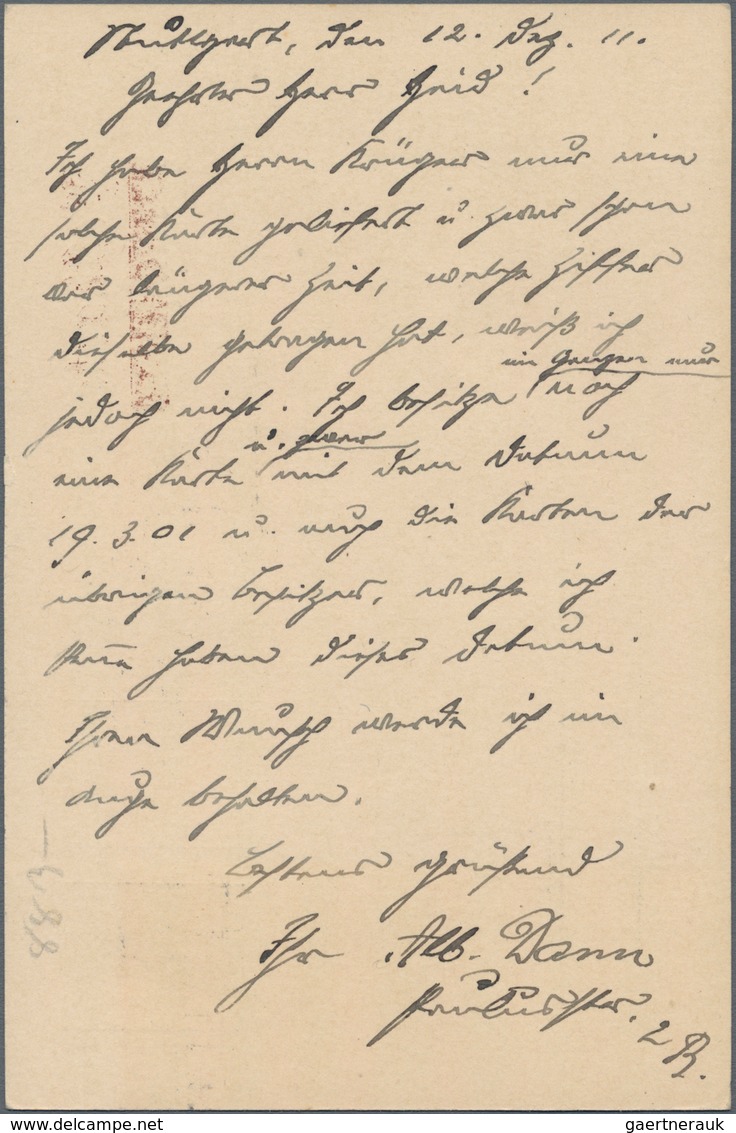 Stuttgart, den 12. Dez. 11.
Geehrter Herr Heid!
Ich habe Herrn Krüger nur eine
solche Karte geliefert u. zwar schon
vor längerer Zeit, welche Ziffer
dieselbe getragen hat, weiß ich
im Ganzen nur
jedoch nicht. Ich besitze noch
u. zwar
eine Karte mit dem Datum
19. 3. 01 u. auch die Karten der
übrigen Besitzer, welche ich
kenne haben dieses Datum.
Ihren Wunsch werde ich im
Auge behalten.
Bestens grüßend
Ihr Alb. Dann
Paulusstr. 2 B.
883
www.delcampe.net
gaertnerauk